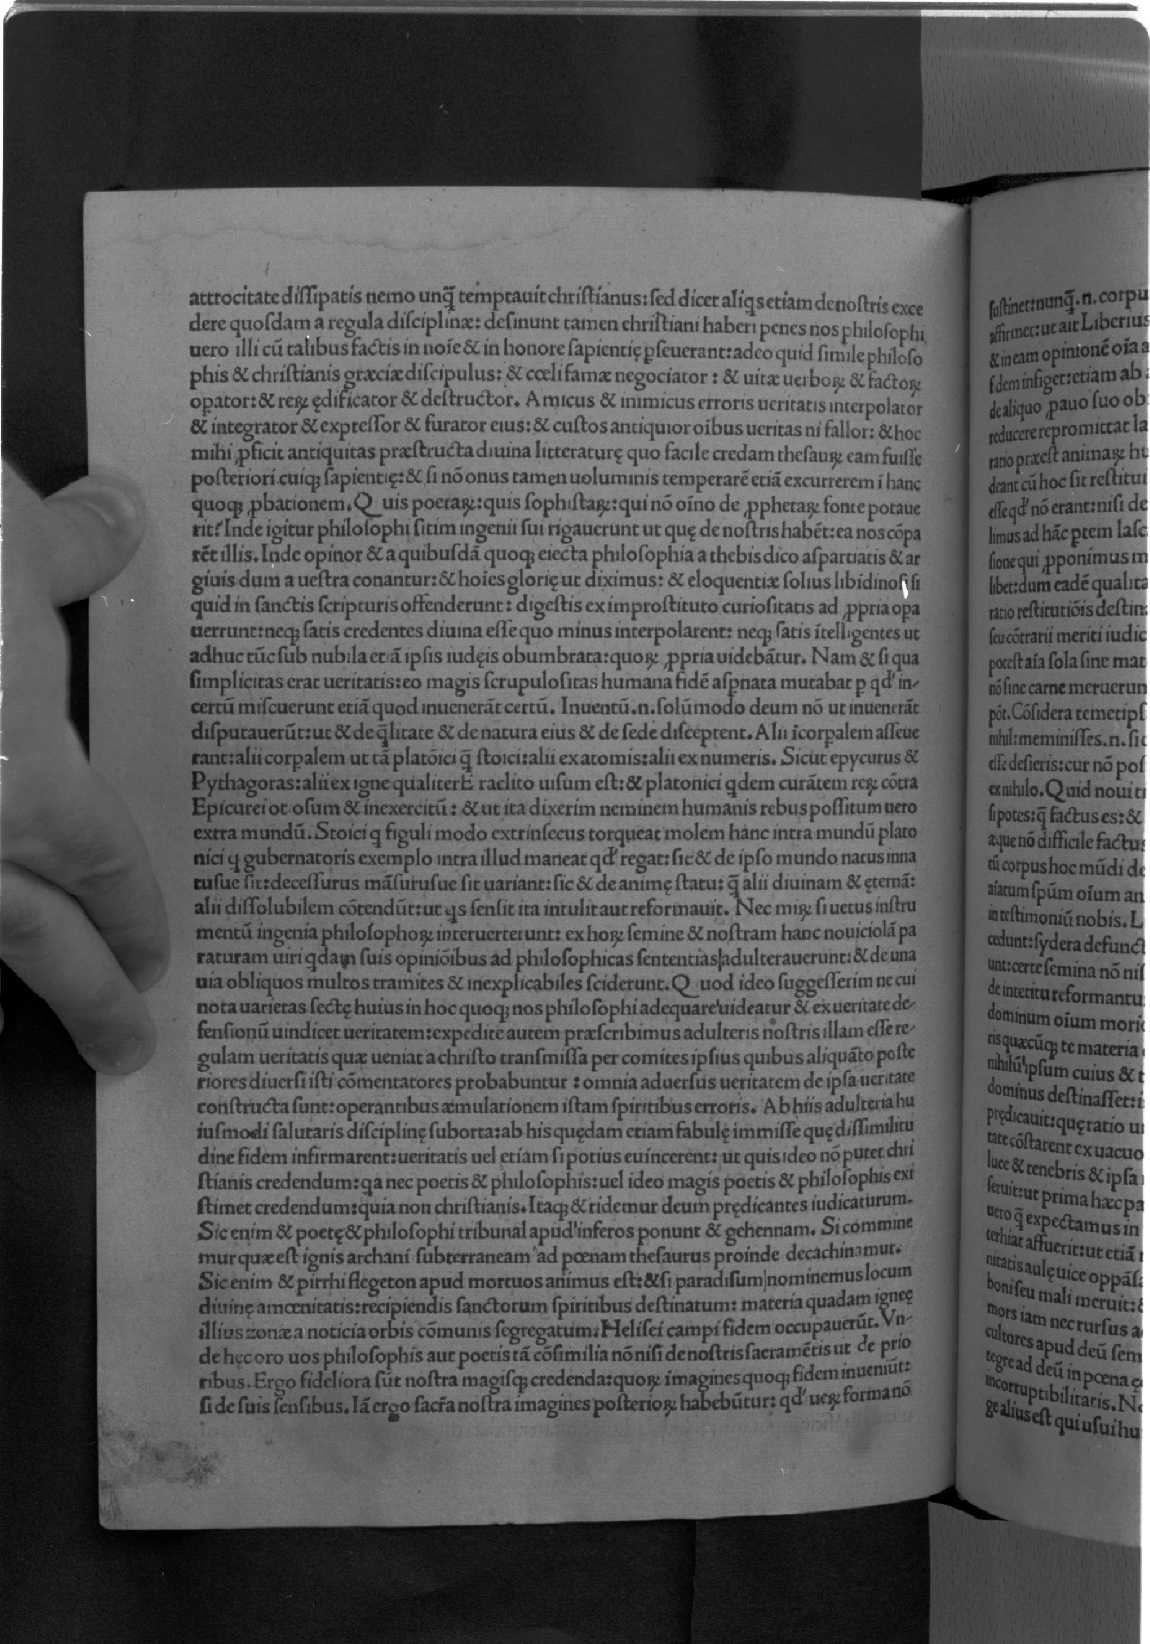 attrocitate dissipatis nemo unq̃ temptauit christianus: sed dicet aliqs etiam de nostris exce
dere quosdam a regula disciplinæ: desinunt tamen christiani haberi penes nos philosophi
uero illi cũ talibus factis in noĩe & in honore sapientię ꝑseuerant: adeo quid simile philoso
phis & christianis græciæ discipulus: & cœli famæ negociator: & uitæ uerboꝝ & factoꝝ
oꝑator: & reꝝ ędificator & destructor. Amicus & inimicus erroris ueritatis interpolator
& integrator & expressor & furator eius: & custos antiquior oĩbus ueritas ni fallor: & hoc
mihi ꝓficit antiquitas præstructa diuina litteraturę quo facile credam thesauꝝ eam fuisse
posteriori cuiqꝫ sapientię: & si nõ onus tamen uoluminis temperarẽ etiã excurrerem ĩ hanc
quoqꝫ ꝓbationem. Quis poetaꝝ: quis sophistaꝝ: qui nõ oĩno de ꝓphetaꝝ fonte potaue
rit? Inde igitur philosophi sitim ingenii sui rigauerunt ut quę de nostris habẽt: ea nos cõpa
rẽt illis. Inde opinor & a quibusdã quoqꝫ eiecta philosophia a thebis dico a spartiatis & ar
giuis dum a uestra conantur: & hoĩes glorię ut diximus: & eloquentiæ solius libidinosi si
quid in sanctis scripturis offenderunt: digestis ex improstituto curiositatis ad ꝓpria opa
uerrunt: neqꝫ satis credentes diuina esse quo minus interpolarent: neqꝫ satis ĩtelligentes ut
adhuc tũc sub nubila etiã ipsis iudęis obumbrata: quoꝝ ꝓpria uidebãtur. Nam & si qua
simplicitas erat ueritatis: eo magis scrupulositas humana fidẽ aspnata mutabat ꝑ qđ in-
certũ miscuerunt etiã quod inuenerãt certũ. Inuentũ .n. solũmodo deum nõ ut inuenerãt
disputauerũt: ut & de q̃litate & de natura eius & de sede disceptent. Alii ĩcorpalem asseue
rant: alii corpalem ut tã platõici q̃ stoici: alii ex atomis: alii ex numeris. Sicut epycurus &
Pythagoras: alii ex igne qualiter Eraclito uisum est: & platonici qdem curãtem reꝝ cõtra
Epicurei otiosum & inexercitũ: & ut ita dixerim neminem humanis rebus possitum uero
extra mundũ. Stoici q figuli modo extrinsecus torqueat molem hanc intra mundũ plato
nici q gubernatoris exemplo intra illud maneat qđ regat: sic & de ipso mundo natus inna
tusue sit: decessurus mãsurusue sit uariant: sic & de animę statu: q̃ alii diuinam & ęternã:
alii dissolubilem cõtendũt: ut qs sensit ita intulit aut reformauit. Nec miꝝ si uetus instru
mentũ ingenia philosophoꝝ interuerterunt: ex hoꝝ semine & nostram hanc nouiciolã pa
raturam uiri qdam suis opiniõibus ad philosophicas sententias adulterauerunt: & de una
uia obliquos multos tramites & inexplicabiles sciderunt. Quod ideo suggesserim ne cui
nota uarietas sectę huius in hoc quoqꝫ nos philosophi adequare uideatur & ex ueritate de-
fensionũ uindicet ueritatem: expedite autem præscribimus adulteris nostris illam esse re-
gulam ueritatis quæ ueniat a christo transmissa per comites ipsius quibus aliquãto poste
riores diuersi isti cõmentatores probabuntur: omnia aduersus ueritatem de ipsa ueritate
constructa sunt: operantibus æmulationem istam spiritibus erroris. Ab hiis adulteria hu
iusmodi salutaris disciplinę suborta: ab his quędam etiam fabulę immisse quę dissimilitu
dine fidem infirmarent: ueritatis uel etiam si potius euincerent: ut quis ideo nõ putet chri
stianis credendum: qa nec poetis & philosophis: uel ideo magis poetis & philosophis exi
stimet credendum: quia non christianis. Itaqꝫ & ridemur deum prędicantes iudicaturum.
Sic enim & poetę & philosophi tribunal apud inferos ponunt & gehennam. Si commine
mur quæ est ignis archani subterraneam ad pœnam thesaurus proinde decachinamur.
Sic enim & pirrhiflegeton apud mortuos animus est: & si paradisum nominemus locum
diuinę amœnitatis: recipiendis sanctorum spiritibus destinatum: materia quadam igneę
illius zonæ a noticia orbis cõmunis segregatum. Helisei campi fidem occupauerũt. Vn-
de hęc oro uos philosophis aut poetis tã cõsimilia nõ nisi de nostris sacramẽtis ut de prio
ribus. Ergo fideliora sũt nostra magisqꝫ credenda: quoꝝ imagines quoqꝫ fidem inueniũt:
si de suis sensibus. Iã ergo sacr̃a nostra imagines posterioꝝ habebũtur: qđ ueꝝ forma nõ
sustinet: nunq̃ .n. corpu
affirmet: ut ait Liberius
& in eam opinionẽ oĩa a
fdem infiget: etiam ab
de aliquo ꝓ auo suo ob
reducere repromittat la
ratio præest animaꝝ hu
deant cũ hoc sit restitui
esse qđ nõ erant: nisi de
limus ad hãc ptem lasc
sione qui ꝓponimus m
libet: dum eadẽ qualita
ratio restitutiõis destin
seu cõtrarii meriti iudic
potest aĩa sola sine mat
nõ sine carne meruerun
põt. Cõsidera temetips
nihil: meminisses .n. si q
esse desieris: cur nõ pos
ex nihilo. Quid noui ti
si potes: q̃ factus es: &
æque nõ difficile factus
tũ corpus hoc mũdi de
aĩatum spũm oĩum an
in testimoniũ nobis. L
cedunt: sydera defunct
unt: certe semina nõ nis
de interitu reformantu
dominum oĩum morie
ris quæcũqꝫ te materia
nihilũ ipsum cuius & t
dominus destinasset: i
prędicauit: quę ratio u
tate cõstarent ex uacuo
luce & tenebris & ipsa
seruit: ut prima hæc pa
uero q̃ expectamus in
terhiat affuerit: ut etiã
nitatis aulę uice oppãsa
boni seu mali meruit: &
mors iam nec rursus a
cultores apud deũ sem
tegre ad deũ in pœna ę
incorruptibilitatis. No
ge alius est qui usui hu